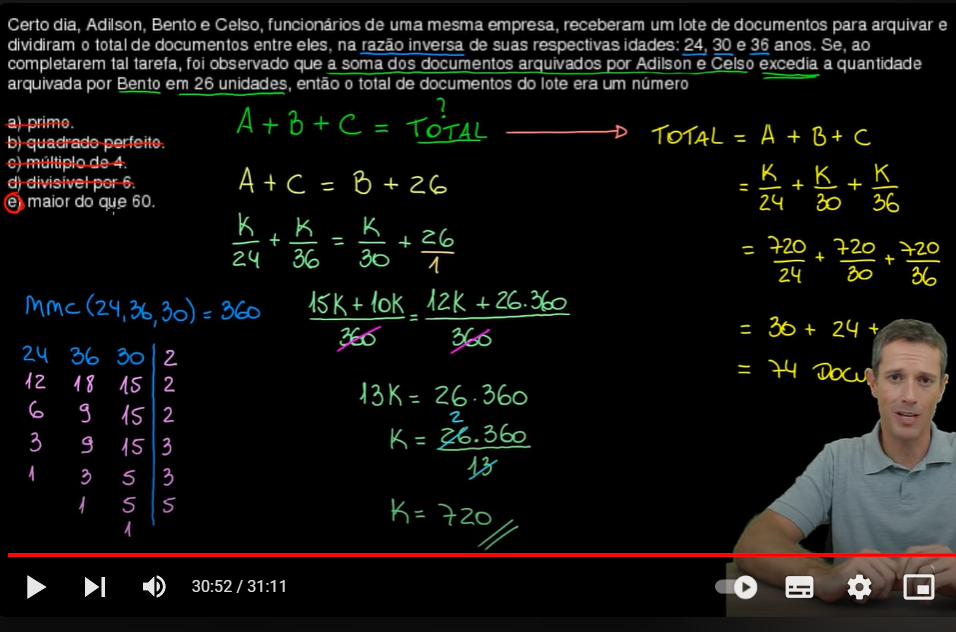 Certo dia, Adilson, Bento e Celso, funcionários de uma mesma empresa, receberam um lote de documentos para arquivar e
dividiram o total de documentos entre eles, na razão inversa de suas respectivas idades: 24, 30 e 36 anos. Se, ao
completarem tal tarefa, foi observado que a soma dos documentos arquivados por Adilson e Celso excedia a quantidade
arquivada por Bento em 26 unidades, então o total de documentos do lote era um número
a) primo.
b) quadrado perfeito.
c) múltiplo de 4.
d) divisível por 6.
e) maior do que 60.
?
A + B + C = TOTAL
A + C = B + 26
K/24 + K/36 = K/30 + 26/1
MMC (24,36,30) = 360
24 36 30 | 2
12 18 15 | 2
6 9 15 | 2
3 9 15 | 3
1 3 5 | 3
1 5 | 5
1
15K + 10K/360 = 12K + 26.360/360
13K = 26.360
2
K = 26.360/13
K = 720
TOTAL = A + B + C
= K/24 + K/30 + K/36
= 720/24 + 720/30 + 720/36
= 30 + 24 +
= 74 DOCU
30:52 / 31:11